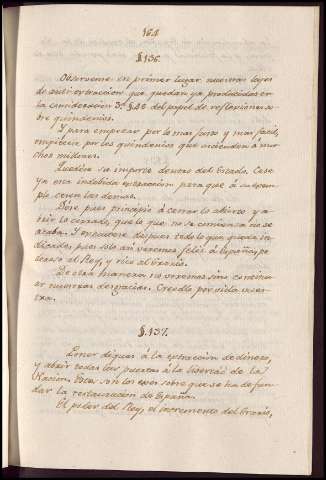 164
§.136.
Observense en primer lugar nuestras leyes
de anti-extraccion que quedan ya producidas en
la consideracion 3ª §.48 del papel de reflexiones so-
bre quindenios.
Y para empezar por lo mas justo y mas facil,
empiecese por los quindenios que ascienden á mu-
chos millones.
Quedese su importe dentro del Estado. Cese
ya esa indebida extraccion para que á su exem-
plo cesen las demas.
Dese pues principio á cerrar lo abierto y a-
brir lo cerrado, que lo que no se comienza no se
acaba. Y executese despues todo lo que queda in-
dicado, pues solo asi veremos feliz á España, po-
deroso al Rey, y rico al Erario.
De otra manera no veremos sino continu-
ar nuestras desgracias. Creedlo por vida vues-
tra.
§.137.
Poner diques á la extraccion de dinero,
y abrir todas las puertas á la libertad de la
Nacion. Estos son los exes sobre que se ha de fun-
dar la restauracion de España.
El poder del Rey, el incremento del Erario,